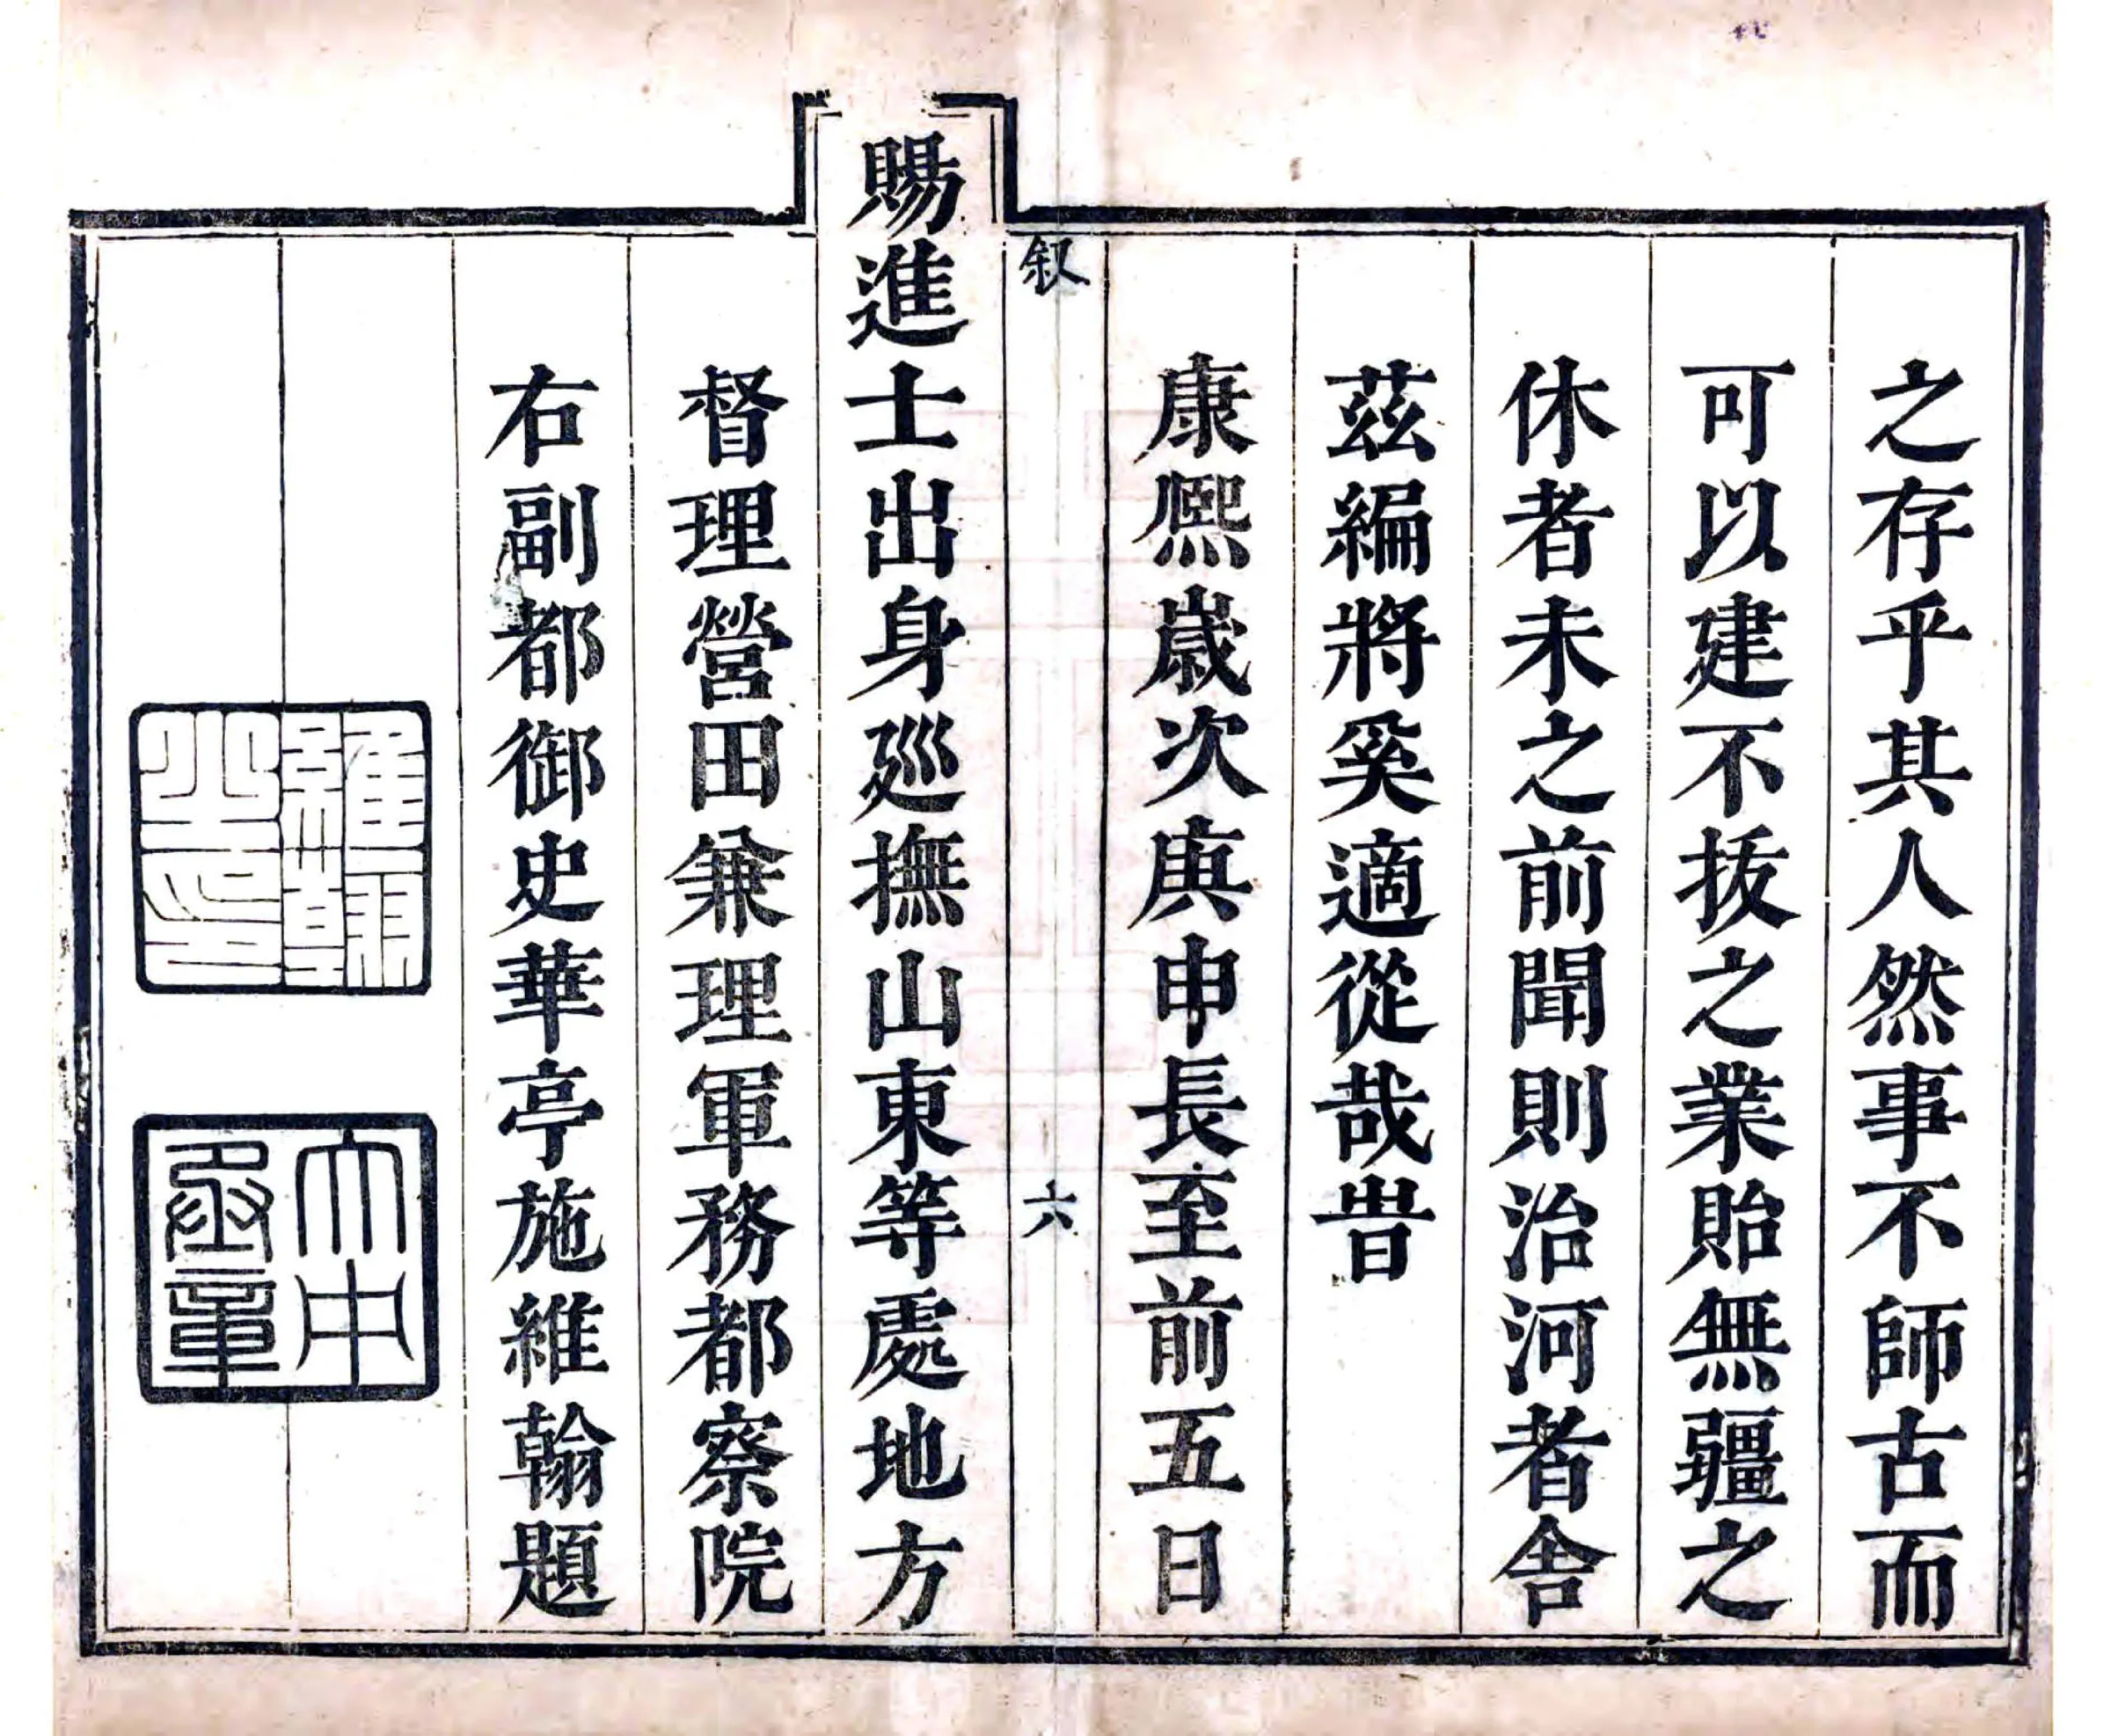 之存乎其人然事不師古而
可以建不抜之業貽無疆之
休者未之前聞則治河者舍
茲編將奚適從哉旹
康熈歲次庚申長至前五日
叙
六
賜進士出身廵撫山東等處地方
督理營田兼理軍務都察院
右副都御史華亭施維翰題
維翰之印
大中丞章